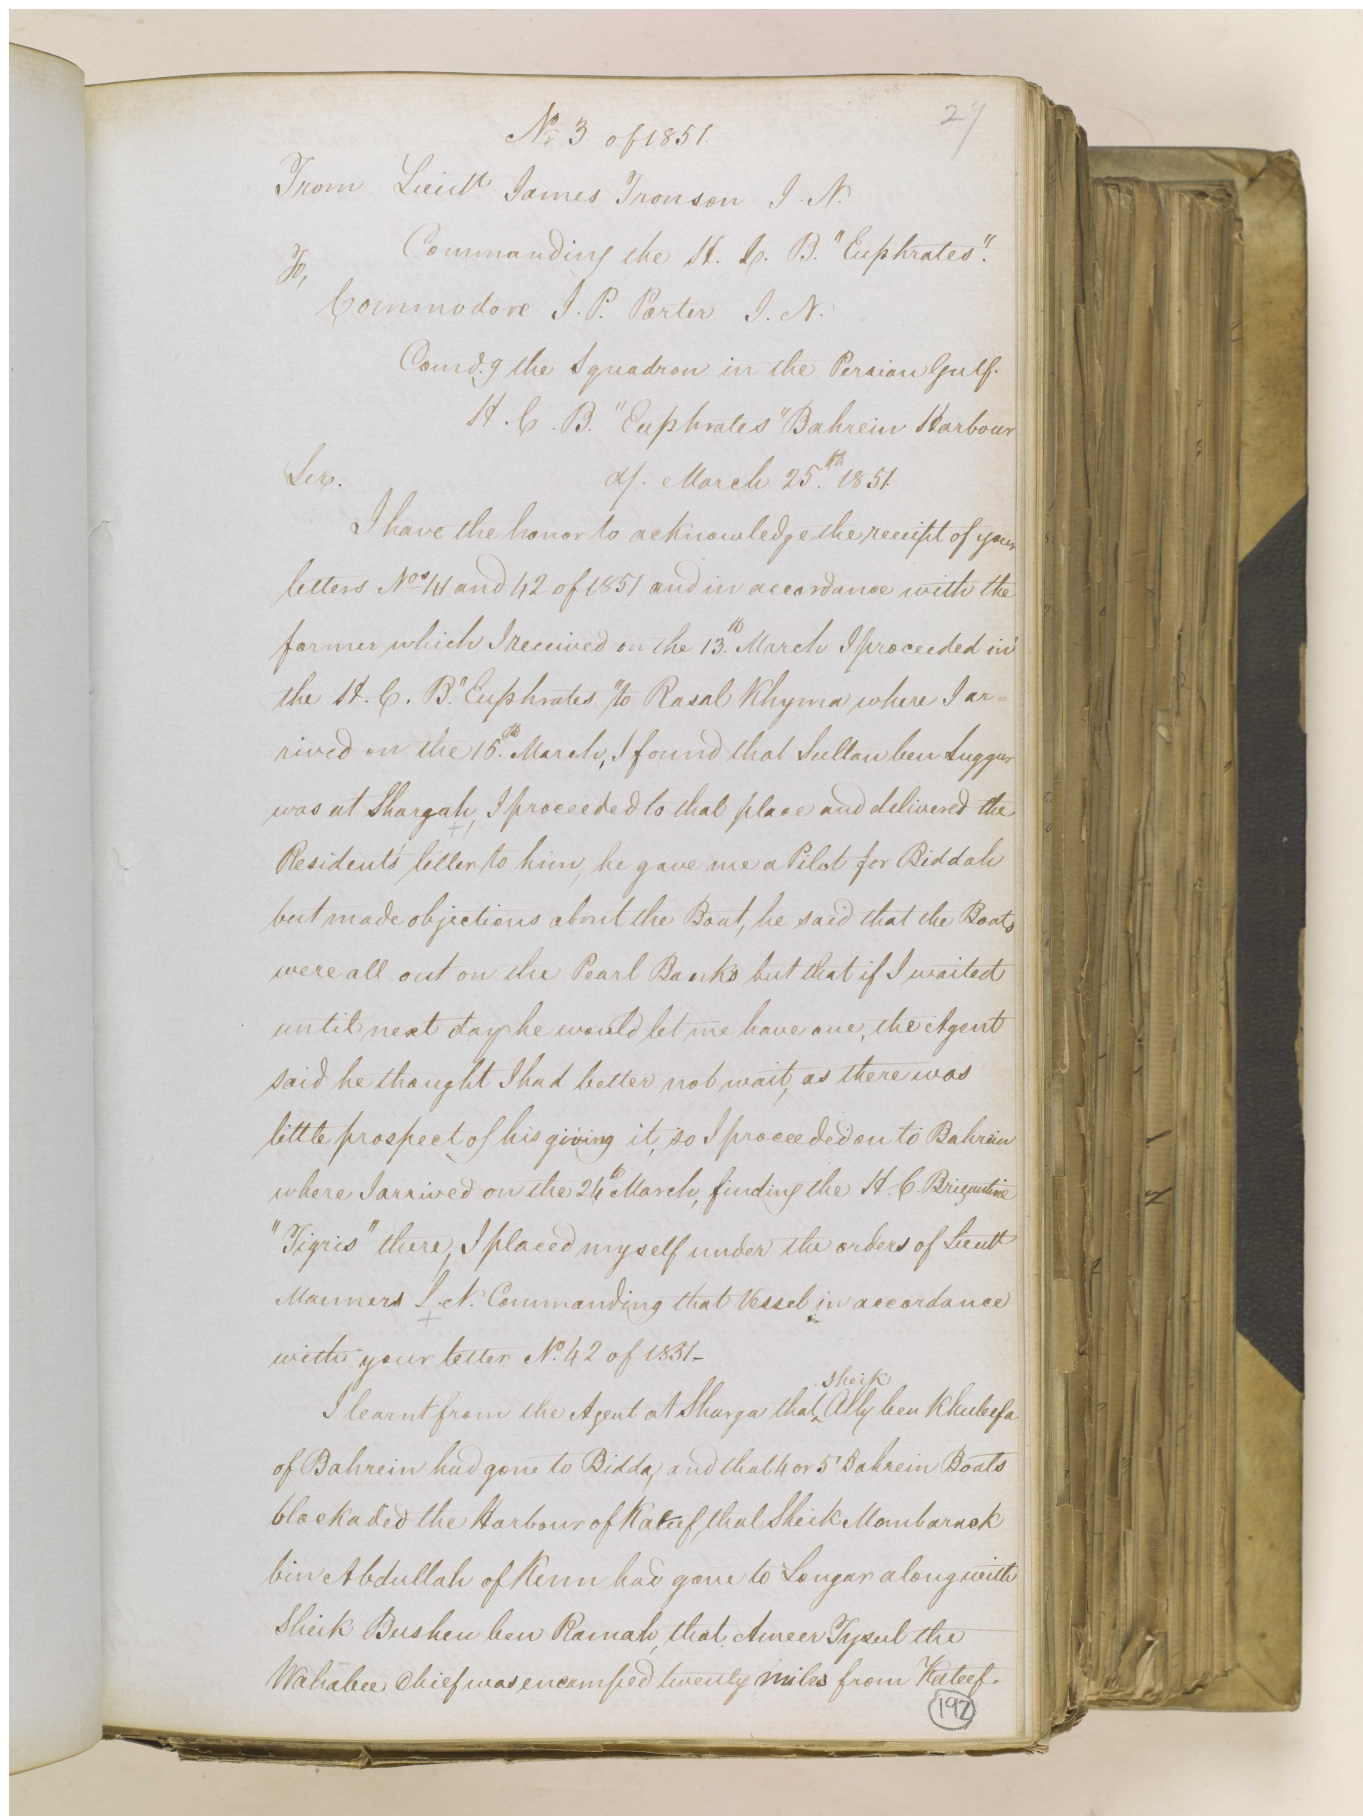 27
No 3 of 1851.
From Lieutt James Tronson I. N.
Commanding the H. C. B. "Euphrates".
To,
Commodore J. P. Porter I. N.
Comd.g the Squadron in the Persian Gulf.
H. C. B. "Euphrates" Bahrein Harbour
Sir. March 25th. 1851.
I have the honor to acknowledge the receipt of your
letters Nos 41 and 42 of 1851 and in accordance with the
former which I received on the 13th March I proceeded in
the H. C. B. "Euphrates" to Rasal Khyma where I ar=
rived on the 16th March, I found that Sultan ben Suggur
was at Shargah, I proceeded to that place and delivered the
Residents' letter to him, he gave me a Pilot for Biddah
but made objections about the Boat, he said that the Boats
were all out on the Pearl Banks but that if I waited
until next day he would let me have one, the Agent
said he thought I had better not wait, as there was
little prospect of his giving it, so I proceeded on to Bahrein
where I arrived on the 24th March, finding the H. C. Brigantine
"Tigris" there, I placed myself under the orders of Lieutt
Manners I. N. Commanding that Vessel in accordance
with your letter No. 42 of 1851_
sheik
I learnt from the Agent at Sharga that ^ Ally ben Khuleefa
of Bahrein had gone to Bidda, and that 4 or 5 Bahrein Boats
blockaded the Harbour of Kateef, that Sheik Moubarack
bin Abdullah of Kenn had gone to Longar along with
Sheik Bushen ben Ramah, that Ameer Fysul the
Wahabee Chief was encamped twenty miles from Kateef.
192